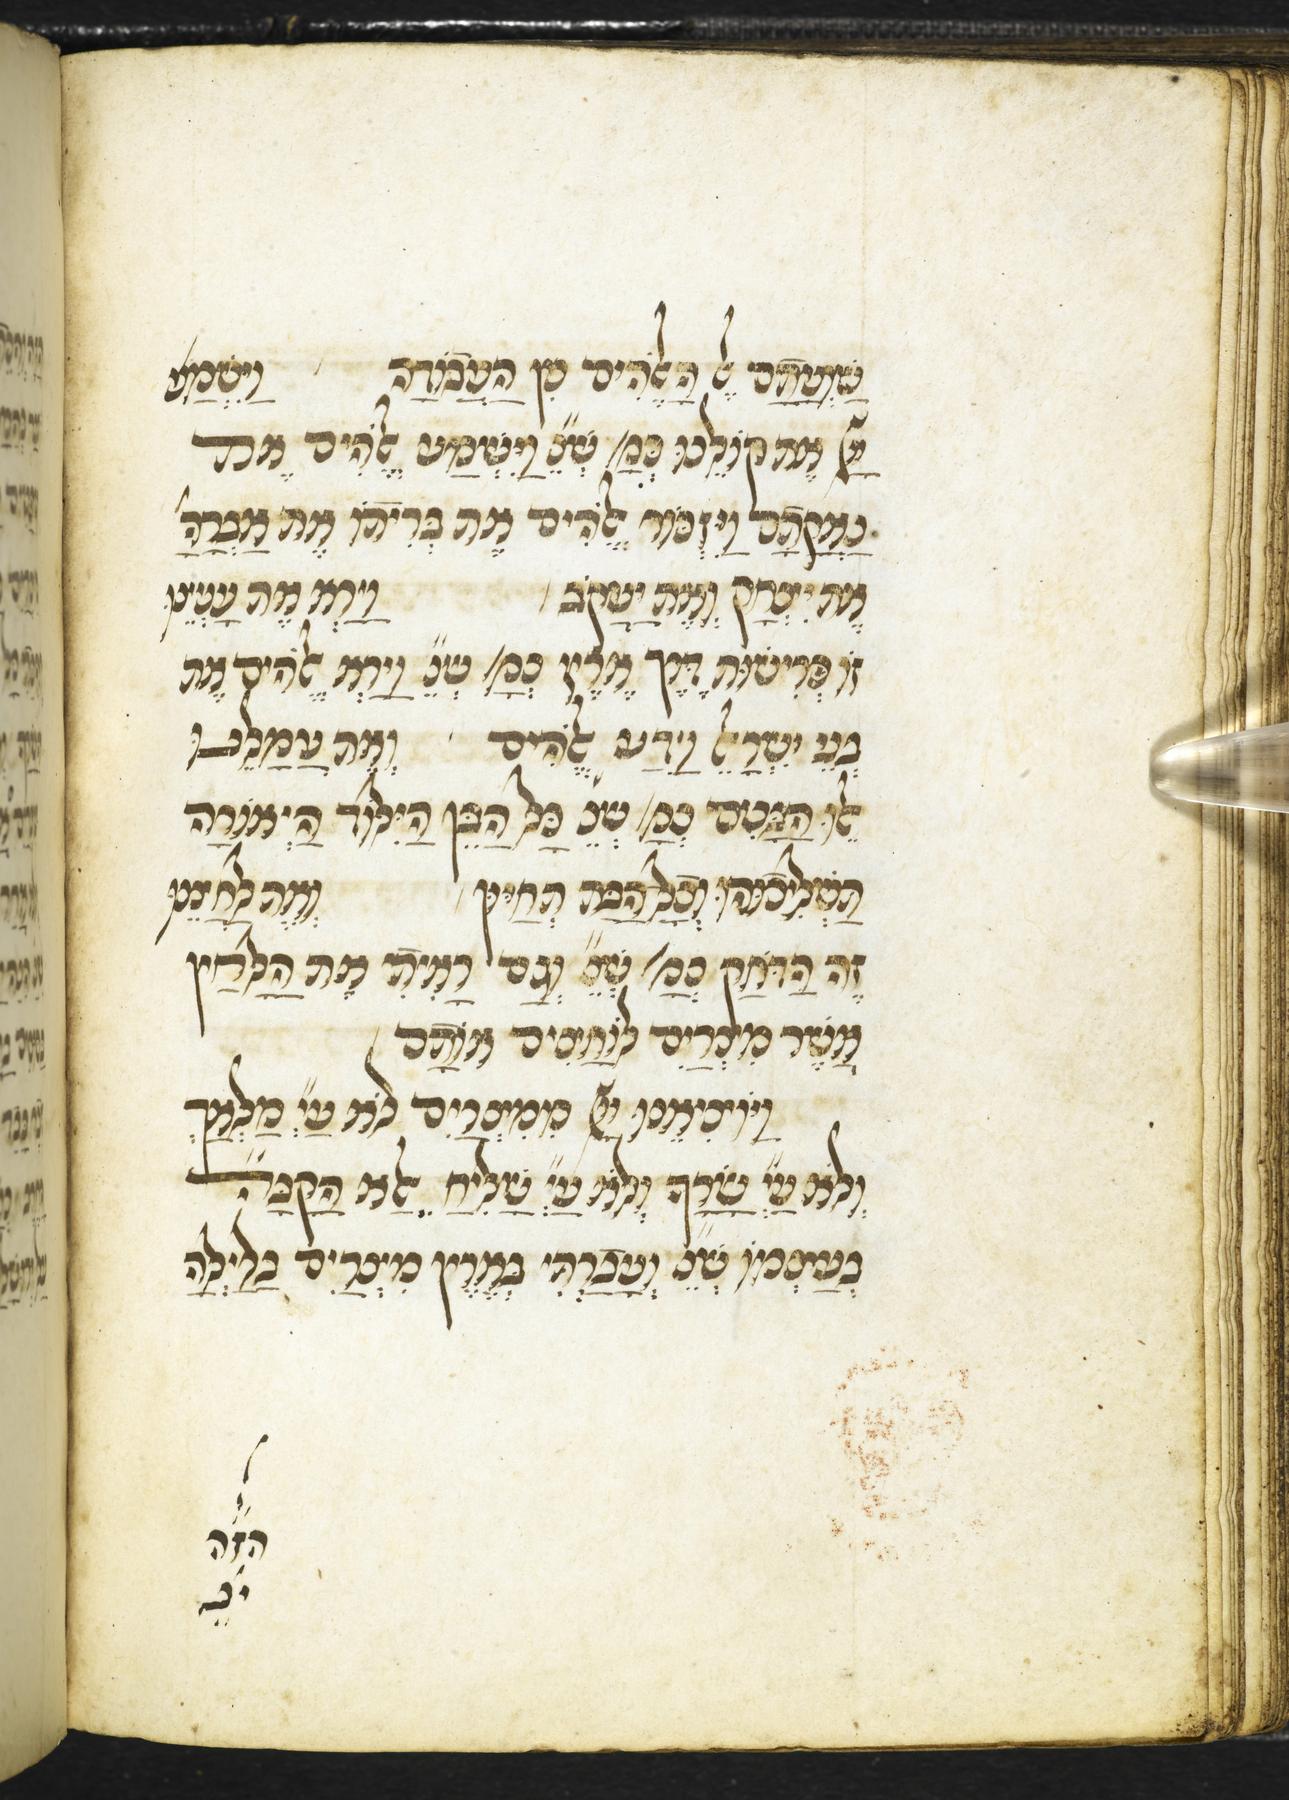 שַׁוְעָתָם אֶל הָאֱלֹהִים מִן הָעֲבוֹדָה וַיִּשְׁמַע
יְיָ אֶת קוֹלֵנוּ כְּמָ׳ שֶׁנֶּ׳ וַיִּשְׁמַע אֱלֹהִים אֶת
נַאֲקָתָם וַיִּזְכּוֹר אֱלֹהִים אֶת בְּרִיתוֹ אֶת אַבְרָהָ׳
אֶת יִצְחָק וְאֶת יַעֲקֹב וַיַּרְא אֶת עָנְיֵינוּ
זוֹ פְּרִישׁוּת דֶּרֶךְ אֶרֶץ כְּמָ׳ שֶׁנֶּ׳ וַיַּרְא אֱלֹהִים אֶת
בְּנֵי יִשְׂרָאֵל וַיֵּדַע אֱלֹהִים וְאֶת עֲמָלֵינוּ
אֵלּוּ הַבָּנִים כְּמָ׳ שֶׁנֶּ׳ כָּל הַבֵּן הַיִּלּוֹד הַיְאוֹרָה
תַּשְׁלִיכוּהוּ וְכָל הַבַּת תְּחַיּוּן וְאֶת לַחֲצֵנוּ
זֶה הַדּוֹחַק כְּמָ׳ שֶׁנֶּ׳ וְגַם רָאִיתִי אֶת הַלַּחַץ
אֲשֶׁר מִצְרַיִם לוֹחֲצִים אוֹתָם
וַיּוֹצִיאֵנוּ יְיָ מִמִּצְרַיִם לֹא עַ״י מַלְאָךְ
וְלֹא עַ״י שָׂרָף וְלֹא עַ״י שָׁלִיחַ אֶלָּא הַקָּבָּ״ה
בְּעַצְמוֹ שֶׁנֶּ׳ וְעָבַרְתִּי בְּאֶרֶץ מִצְרַיִם בַּלַּיְלָה
הזה